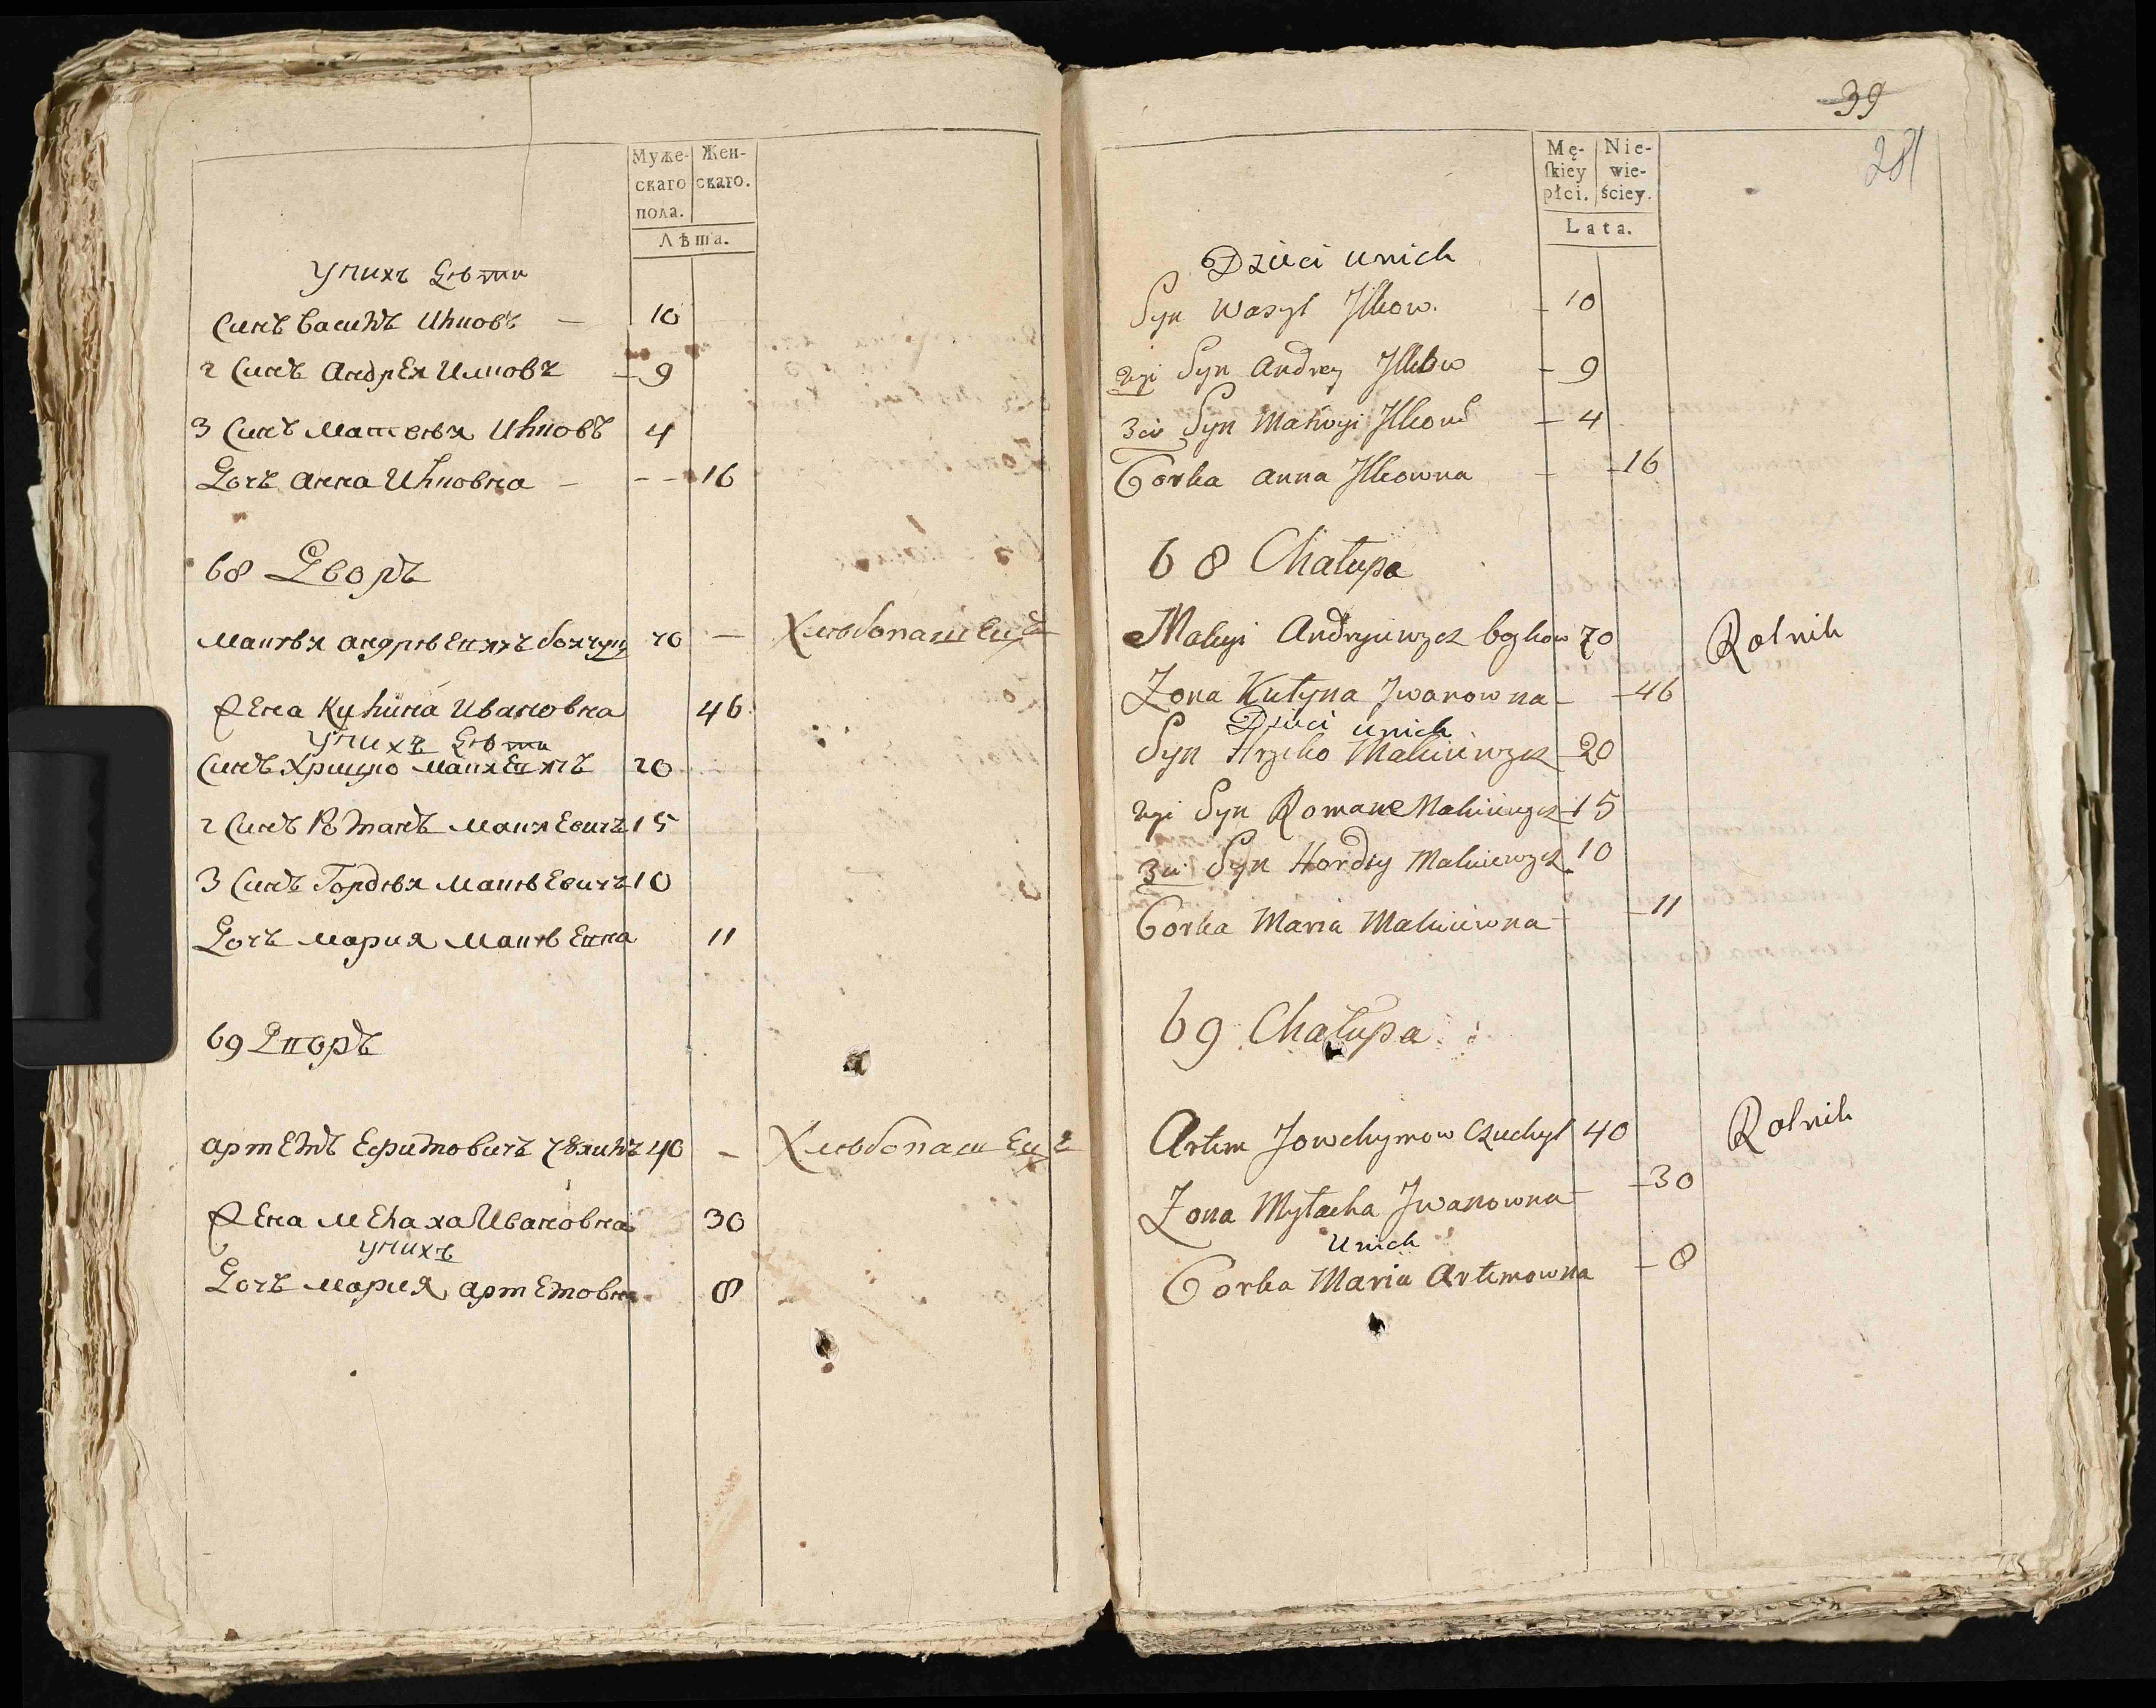 Муже-
скаго
пола.
Жен-
скаго.
Лѣта.
Унихъ Дѣти
Синъ Василъ Илковъ — 10
2 Синъ Андрей Илковъ — 9
3 Синъ Матвѣй Илковъ 4
Дочъ Анна Илковна — - - 16
68 Дворъ
Макѣй Андрѣевичъ 70 — Хлѣбопашецъ
Жена Кулина Ивановна 46
Унихъ Дѣти
Синъ Хрицко Макѣевичъ 20
2 Синъ Романъ Макѣевичъ 15
3 Синъ Гордѣй Макѣевичъ 10
Дочъ Мария Макѣевна 11
69 Дворъ
Артемъ Ефимовичъ 40 — Хлѣбопашецъ
Жена Мелаха Ивановна 30
Унихъ
Дочъ Мария Артемовна 8
39
281
Mę-
ſkiey
płci.
Nie-
wie-
ściey.
Lata.
Dzieci unich
Syn Wasyl Jlkow. - 10
2gi Syn Andrey Jlkow - 9
3ci Syn Matwyi Jlkow - 4
Corka Anna Jlkowna - - 16
68 Chałupa
Makyi Andryiewycz 70 Rolnik
Zona Kulyna Jwanowna - - 46
Dzieci unich
Syn Hrycko Makiiewycz - 20
2gi Syn Roman Makiiewycz - 15
3ci Syn Hordiy Makiiewycz 10
Corka Maria Makiiewna - - 11
69 Chałupa
Artem Jowchymow Czuchyl 40 Rolnik
Zona Mylacha Jwanowna - - 30
Unich
Corka Maria Artemowna - 8